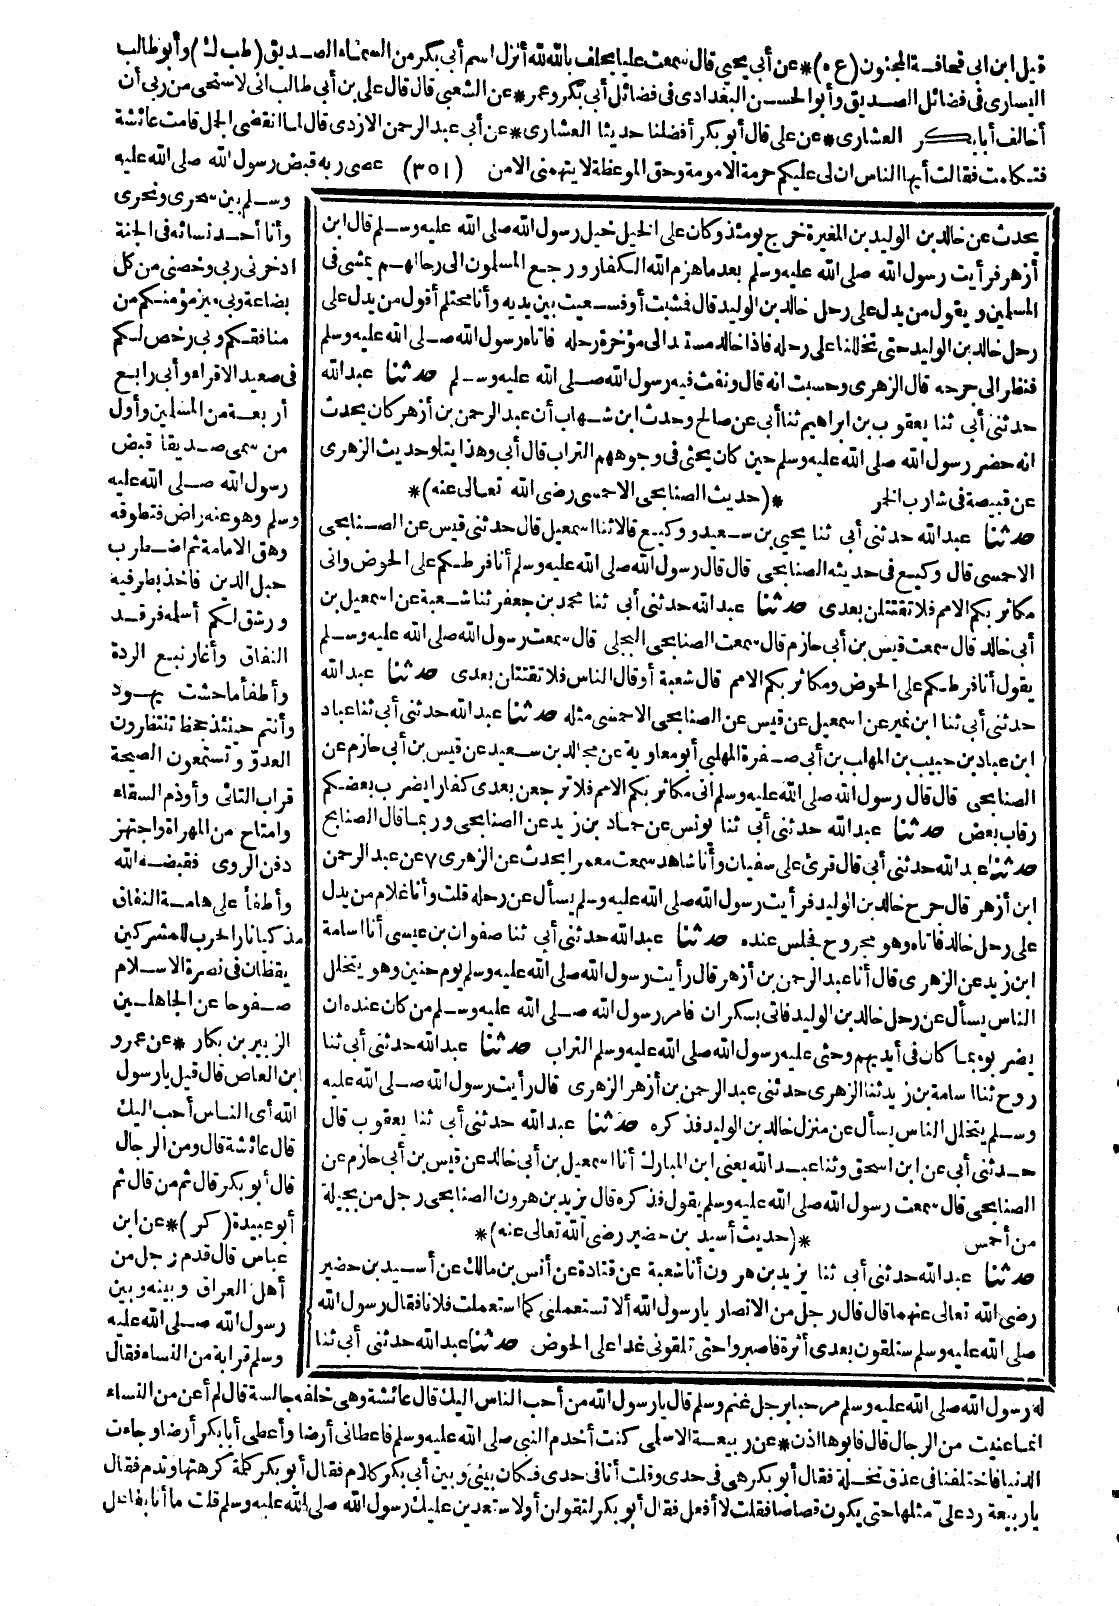 قيل ابن أبى قحافة المجنون (ع ه) * عن أبى يحيى قال سمعت عليا يحلف بالله لله أنزل اسم أبى بكر من السماء الصديق (طب ك) وأبو طالب
اليسارى فى فضائل الصديق وأبو الحسن البغدادى فى فضائل أبى بكر وعمر * عن الشعبى قال قال على بن أبى طالب انى لاستحى من ربى أن
أخالف أبا بكر العشارى * عن على قال أبو بكر أفضلنا حديثا العشارى * عن أبى عبد الرحمن الازدى قال لما انقضى الجمل قامت عائشة
فتكلمت فقالت أيها الناس ان لى عليكم حرمة الامومة وحق الموعظة لا يتهمنى الا من (٣٥١) عصى ربه قبض رسول الله صلى الله عليه
وسلم بين سحرى ونحرى
وأنا أحد نسائه فى الجنة
ادخرنى ربى وخصنى من كل
بضاعة وبى ميز مؤمنكم من
منافقكم وبى رخص لكم
فى صعيد الاقراء وأبى رابع
أربعة من المسلمين وأول
من سمى صديقا قبض
رسول الله صلى الله عليه
وسلم وهو عنه راض فتطوقه
وهق الامامة ثم اضطرب
حبل الدين فاخذ بطرفيه
ورتق لكم أسله فرقد
النفاق وأغار نبع الردة
وأطفأ ما حشت يهود
وأنتم حينئذ جحظ تنتظرون
العدوّ وتستمعون الصيحة
فراب الثأى وأوذم السقاء
وامتاح من المهراة واجتهز
دفن الروى فقبضه الله
وأطفأ على هامة النفاق
مذكيا نار الحرب للمشركين
يقظان فى نصرة الاسلام
صفوحا عن الجاهلين
الزبير بن بكار * عن عمرو
ابن العاص قال قيل يا رسول
الله أى الناس أحب اليك
قال عائشة قال ومن الرجال
قال أبو بكر قال ثم من قال ثم
أبو عبيدة (كر) * عن ابن
عباس قال قدم رجل من
أهل العراق وبينه وبين
رسول الله صلى الله عليه
وسلم قرابة من النساء فقال
يحدث عن خالد بن الوليد بن المغيرة خرج يومئذ وكان على الخيل خيل رسول الله صلى الله عليه وسلم قال ابن
أزهر فرأيت رسول الله صلى الله عليه وسلم بعد ما هزم الله الكفار ورجع المسلمون الى رحالهم يمشى فى
المسلمين ويقول من يدل على رحل خالد بن الوليد قال فمشيت أو فسعيت بين يديه وأنا محتلم أقول من يدل على
رحل خالد بن الوليد حتى تخللنا على رحله فاذا خالد مستند الى مؤخرة رحله فاتاه رسول الله صلى الله عليه وسلم
فنظر الى جرحه قال الزهرى وحسبت انه قال ونفث فيه رسول الله صلى الله عليه وسلم حدثنا عبد الله
حدثنى أبى ثنا يعقوب بن ابراهيم ثنا أبى عن صالح وحدث ابن شهاب أن عبد الرحمن بن أزهر كان يحدث
انه حضر رسول الله صلى الله عليه وسلم حين كان يحثى فى وجوههم التراب قال أبى وهذا يتلو حديث الزهرى
عن قبيصة فى شارب الخمر *(حديث الصنابحى الاحمسى رضى الله تعالى عنه)*
حدثنا عبد الله حدثنى أبى ثنا يحيى بن سعيد ووكيع قالا ثنا اسمعيل قال حدثنى قيس عن الصنابحى
الاحمسى قال وكيع فى حديثه الصنابحى قال قال رسول الله صلى الله عليه وسلم أنا فرطكم على الحوض وانى
مكاثر بكم الامم فلا تقتتلن بعدى حدثنا عبد الله حدثنى أبى ثنا محمد بن جعفر ثنا شعبة عن اسمعيل بن
أبى خالد قال سمعت قيس بن أبى حازم قال سمعت الصنابحى البجلى قال سمعت رسول الله صلى الله عليه وسلم
يقول أنا فرطكم على الحوض ومكاثر بكم الامم قال شعبة أو قال الناس فلا تقتتلن بعدى حدثنا عبد الله
حدثنى أبى ثنا ابن نمير عن اسمعيل عن قيس عن الصنابحى الاحمسى مثله حدثنا عبد الله حدثنى أبى ثنا عباد
ابن عباد بن حبيب بن المهلب بن أبى صفرة المهلبى أبو معاوية عن مجالد بن سعيد عن قيس بن أبى حازم عن
الصنابحى قال قال رسول الله صلى الله عليه وسلم انى مكاثر بكم الامم فلا ترجعن بعدى كفارا يضرب بعضكم
رقاب بعض حدثنا عبد الله حدثنى أبى ثنا يونس عن حماد بن زيد عن الصنابحى وربما قال الصنابح
حدثنا عبد الله حدثنى أبى قال قرئ على سفيان وأنا شاهد سمعت معمرا يحدث عن الزهرى ٧ عن عبد الرحمن
ابن أزهر قال جرح خالد بن الوليد فرأيت رسول الله صلى الله عليه وسلم يسأل عن رحله قلت وأنا غلام من يدل
على رحل خالد فاتاه وهو مجروح فجلس عنده حدثنا عبد الله حدثنى أبى ثنا صفوان بن عيسى أنا اسامة
ابن زيد عن الزهرى قال أنا عبد الرحمن بن أزهر قال رأيت رسول الله صلى الله عليه وسلم يوم حنين وهو يتخلل
الناس يسأل عن رحل خالد بن الوليد فاتى بسكران فامر رسول الله صلى الله عليه وسلم من كان عنده ان
يضربوه بما كان فى أيديهم وحثى عليه رسول الله صلى الله عليه وسلم التراب حدثنا عبد الله حدثنى أبى ثنا
روح ثنا اسامة بن زيد ثنا الزهرى حدثنى عبد الرحمن بن أزهر الزهرى قال رأيت رسول الله صلى الله عليه
وسلم يتخلل الناس يسأل عن منزل خالد بن الوليد فذكره حدثنا عبد الله حدثنى أبى ثنا يعقوب قال
حدثنى أبى عن ابن اسحق وثنا عبد الله يعنى ابن المبارك أنا اسمعيل بن أبى خالد عن قيس بن أبى حازم عن
الصنابحى قال سمعت رسول الله صلى الله عليه وسلم يقول فذكره قال يزيد بن هرون الصنابحى رجل من بجيلة
من أحمس *(حديث أسيد بن حضير رضى الله تعالى عنه)*
حدثنا عبد الله حدثنى أبى ثنا يزيد بن هرون أنا شعبة عن قتادة عن أنس بن مالك عن أسيد بن حضير
رضى الله تعالى عنهما قال قال رجل من الانصار يا رسول الله ألا تستعملنى كما استعملت فلانا فقال رسول الله
صلى الله عليه وسلم ستلقون بعدى أثرة فاصبروا حتى تلقونى غدا على الحوض حدثنا عبد الله حدثنى أبى ثنا
له رسول الله صلى الله عليه وسلم مرحبا برجل غنم وسلم قال يا رسول الله من أحب الناس اليك قال عائشة وهى خلفه جالسة قال لم أعن من النساء
انما عنيت من الرجال قال فابوها اذن * عن ربيعة الاسلمى كنت أخدم النبى صلى الله عليه وسلم فاعطانى أرضا وأعطى أبا بكر أرضا وجاءت
الدنيا فاختلفنا فى عذق نخلة فقال أبو بكر هى فى حدى وقلت أنا فى حدى فكان بينى وبين أبى بكر كلام فقال أبو بكر كلمة كرهتها وندم فقال
يا ربيعة رد علىّ مثلها حتى يكون قصاصا فقلت لا أفعل فقال أبو بكر لتقولن أو لاستعدين عليك رسول الله صلى الله عليه وسلم قلت ما أنا بفاعل